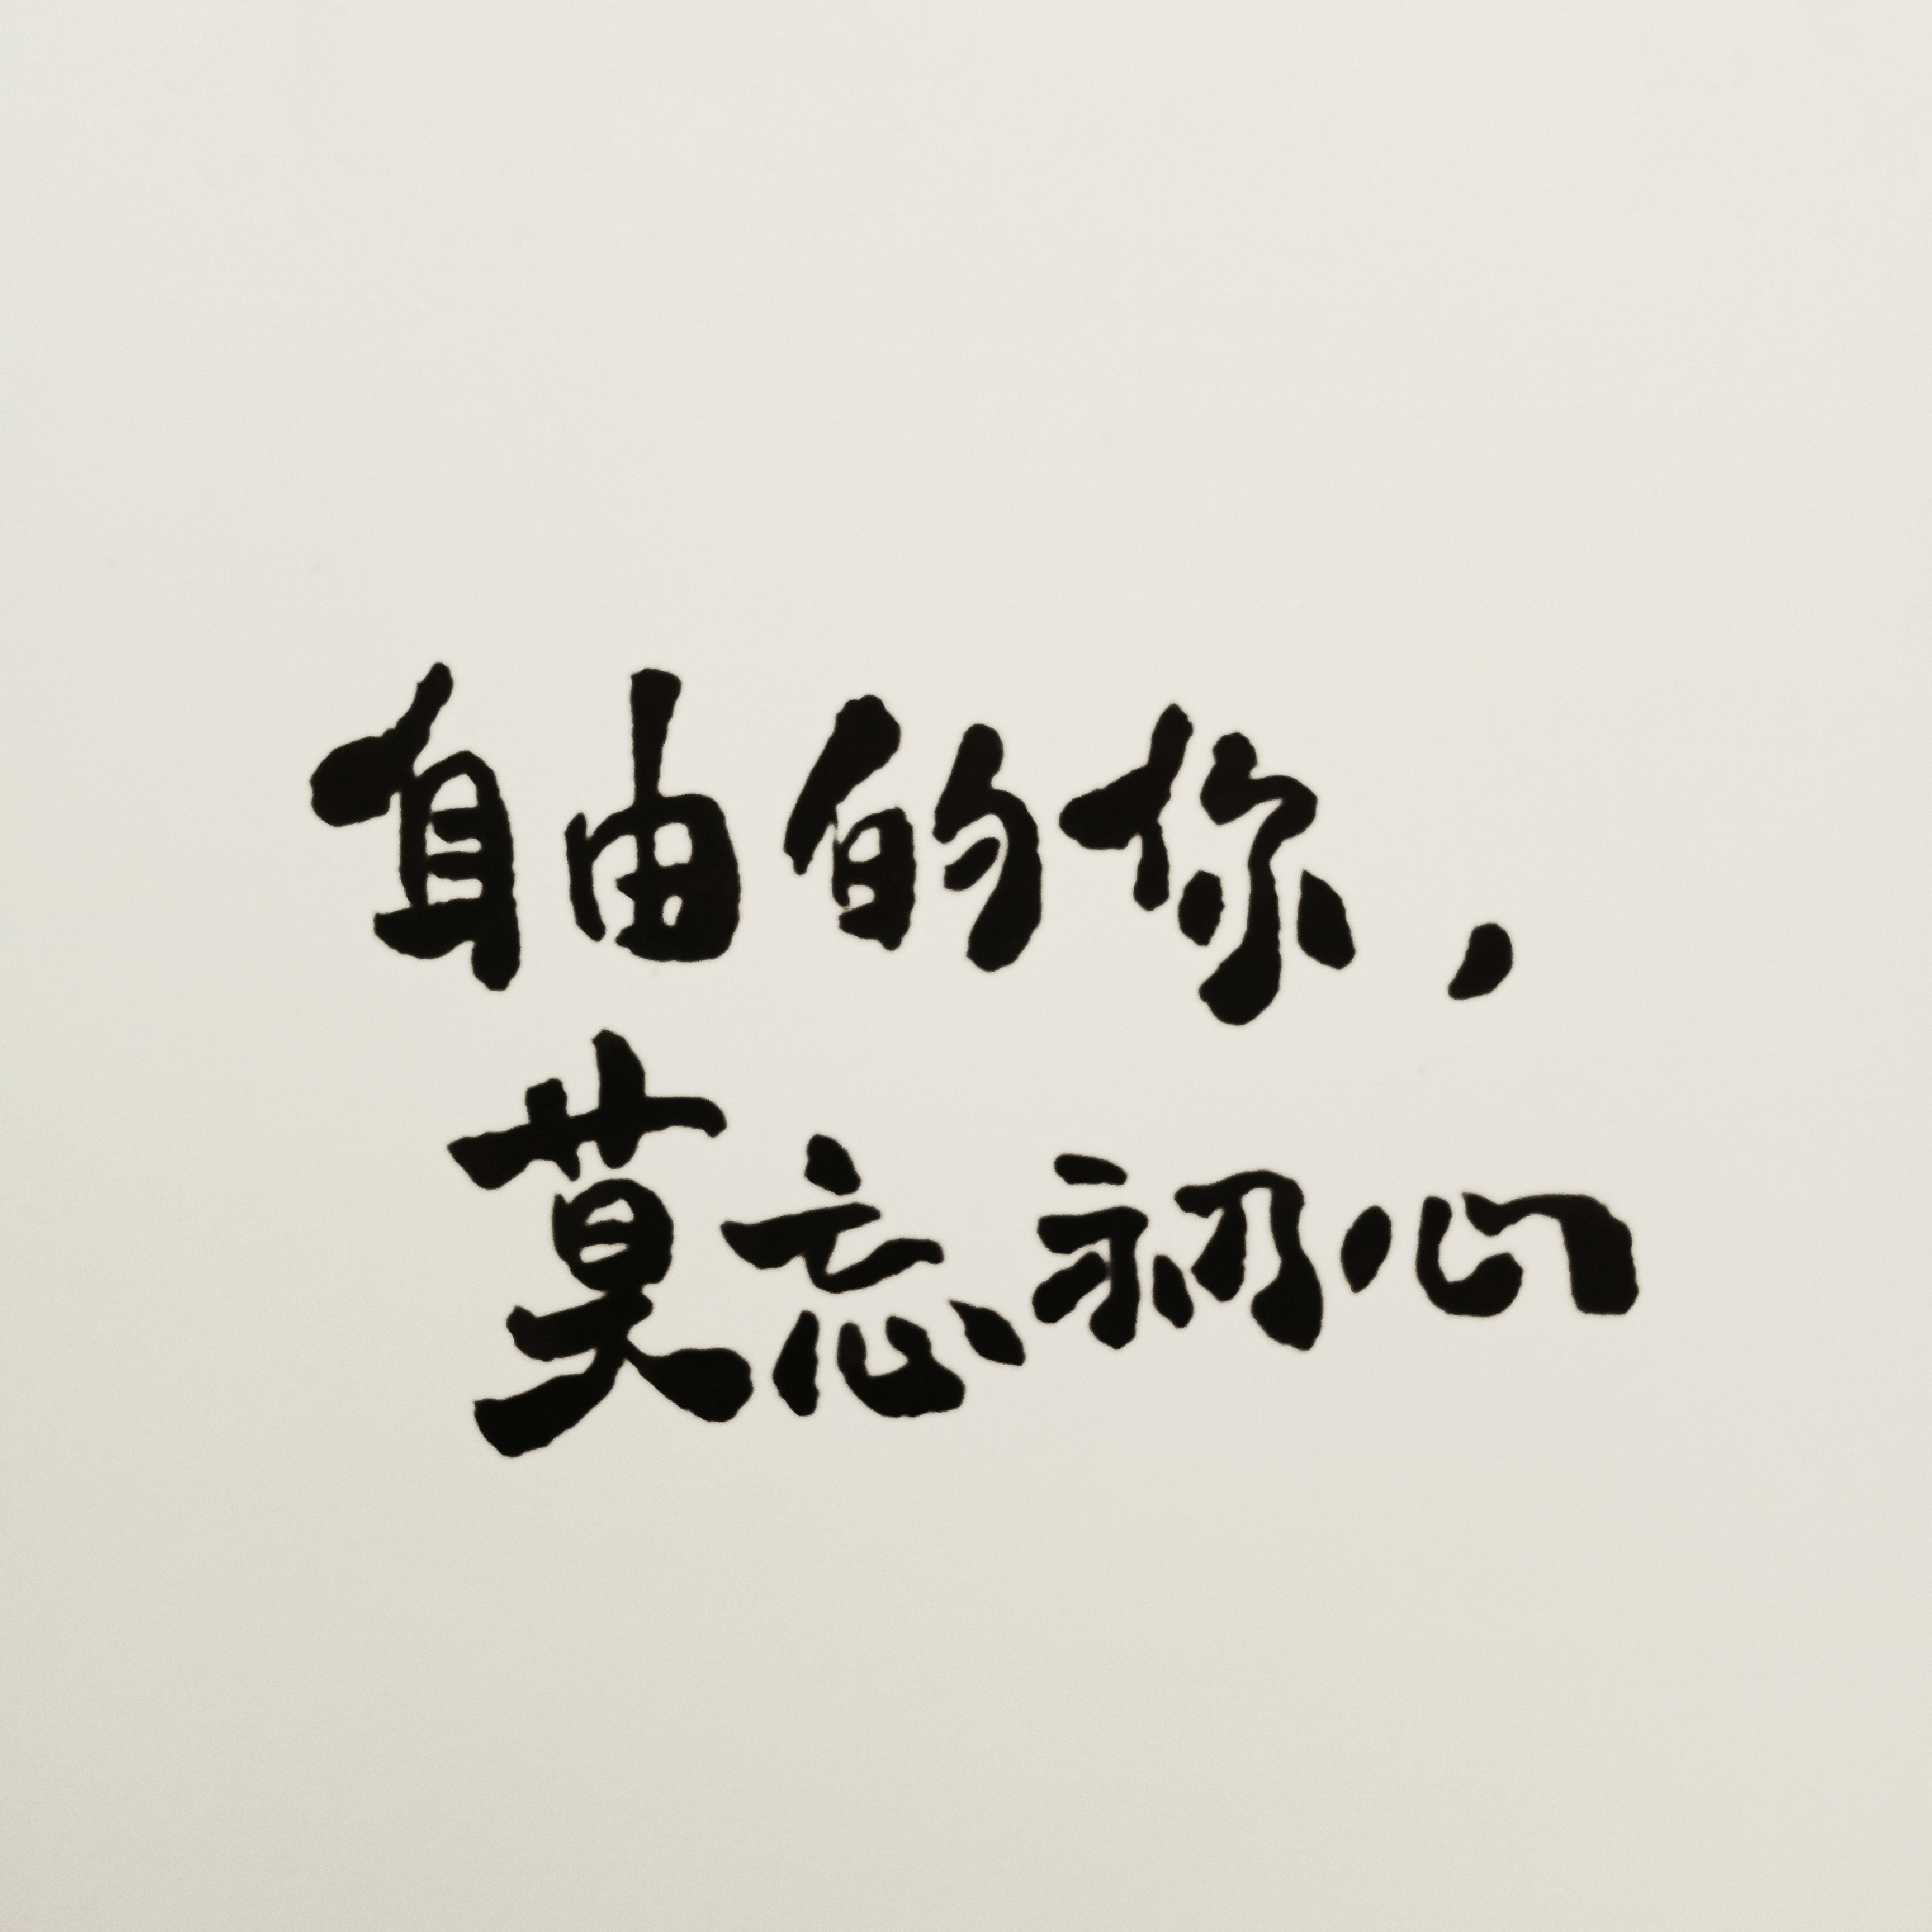 自由的你，
莫忘初心